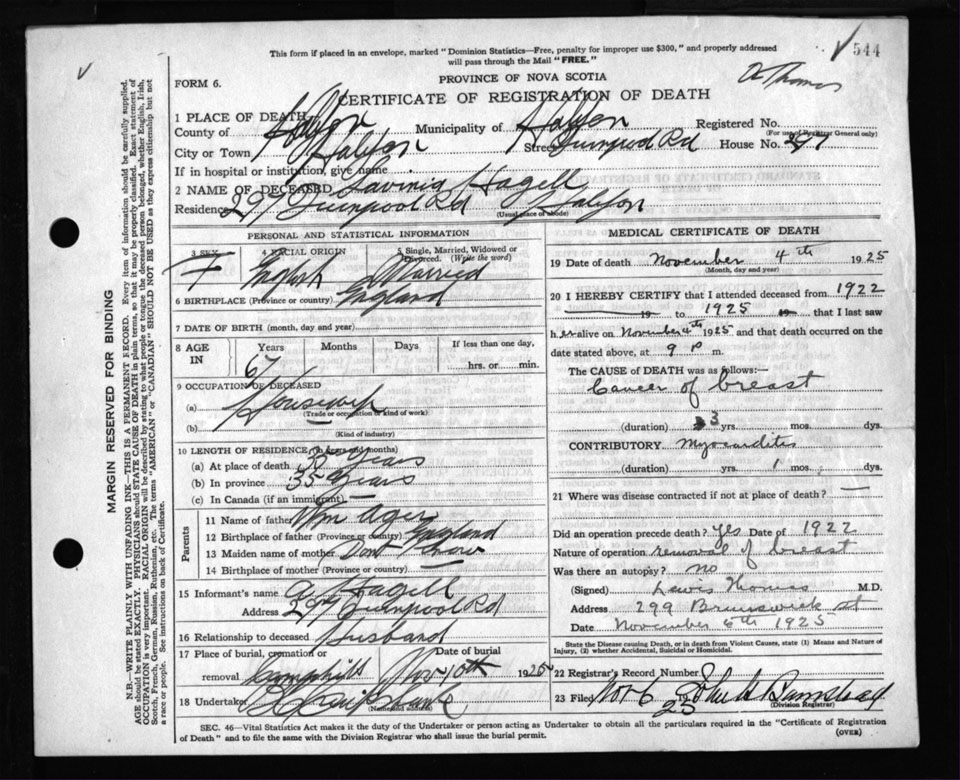 544
This form if placed in an envelope, marked "Dominion Statistics—Free, penalty for improper use $300," and properly addressed
will pass through the Mail "FREE."
FORM 6.
PROVINCE OF NOVA SCOTIA
Dr Thomas
CERTIFICATE OF REGISTRATION OF DEATH
1 PLACE OF DEATH
County of Halifax Municipality of Halifax Registered No.
(For use of Registrar General only)
City or Town Halifax Street Liverpool Rd House No. 297
If in hospital or institution, give name
2 NAME OF DECEASED Lavinia Hagell
Residence 297 Liverpool Rd Halifax
(Usual place of abode)
PERSONAL AND STATISTICAL INFORMATION
3 SEX 4 RACIAL ORIGIN 5 Single, Married, Widowed or
Divorced. (Write the word)
F English Married
6 BIRTHPLACE (Province or country) England
7 DATE OF BIRTH (month, day and year)
8 AGE IN Years Months Days If less than one day,
67 hrs. or min.
9 OCCUPATION OF DECEASED
(a) Housewife
(Trade or occupation or kind of work)
(b)
(Kind of industry)
10 LENGTH OF RESIDENCE (in years and months)
(a) At place of death 35 years
(b) In province 35 years
(c) In Canada (if an immigrant) —
Parents
11 Name of father Wm Ager
12 Birthplace of father (Province or country) England
13 Maiden name of mother Dont Know
14 Birthplace of mother (Province or country) —
15 Informant's name A Hagell
Address 297 Liverpool Rd
16 Relationship to deceased Husband
17 Place of burial, cremation or Date of burial
removal Camphill Nov 10th 1925
18 Undertaker
(Name and address)
MEDICAL CERTIFICATE OF DEATH
19 Date of death November 4th 1925
(Month, day and year)
20 I HEREBY CERTIFY that I attended deceased from 1922
19 to 1925 19 that I last saw
her alive on November 4th 1925 and that death occurred on the
date stated above, at 9 p m.
The CAUSE OF DEATH was as follows:—
Cancer of breast
(duration) 3 yrs. mos. dys.
CONTRIBUTORY Myocarditis
(duration) yrs. 1 mos. dys.
21 Where was disease contracted if not at place of death? —
Did an operation precede death? yes Date of 1922
Nature of operation removal of breast
Was there an autopsy? no
(Signed) Lewis Thomas M.D.
Address 299 Brunswick st
Date November 6th 1925
State the Disease causing Death, or in death from Violent Causes, state (1) Means and Nature of
Injury, (2) whether Accidental, Suicidal or Homicidal.
22 Registrar's Record Number
23 Filed Nov 6 25 John A Barnstead
(Division Registrar)
SEC. 46—Vital Statistics Act makes it the duty of the Undertaker or person acting as Undertaker to obtain all the particulars required in the "Certificate of Registration
of Death" and to file the same with the Division Registrar who shall issue the burial permit.
(OVER)
MARGIN RESERVED FOR BINDING
N.B.—WRITE PLAINLY WITH UNFADING INK—THIS IS A PERMANENT RECORD. Every item of information should be carefully supplied.
AGE should be stated EXACTLY. PHYSICIANS should STATE CAUSE OF DEATH in plain terms, so that it may be properly classified. Exact statement of
OCCUPATION is very important. RACIAL ORIGIN will be described by stating to what people or tongue the deceased person belonged, whether English, Irish,
Scotch, French, German, Russian, Ruthenian, etc. The terms "AMERICAN" or "CANADIAN" SHOULD NOT BE USED as they express citizenship but not
a race or people. See instructions on back of Certificate.